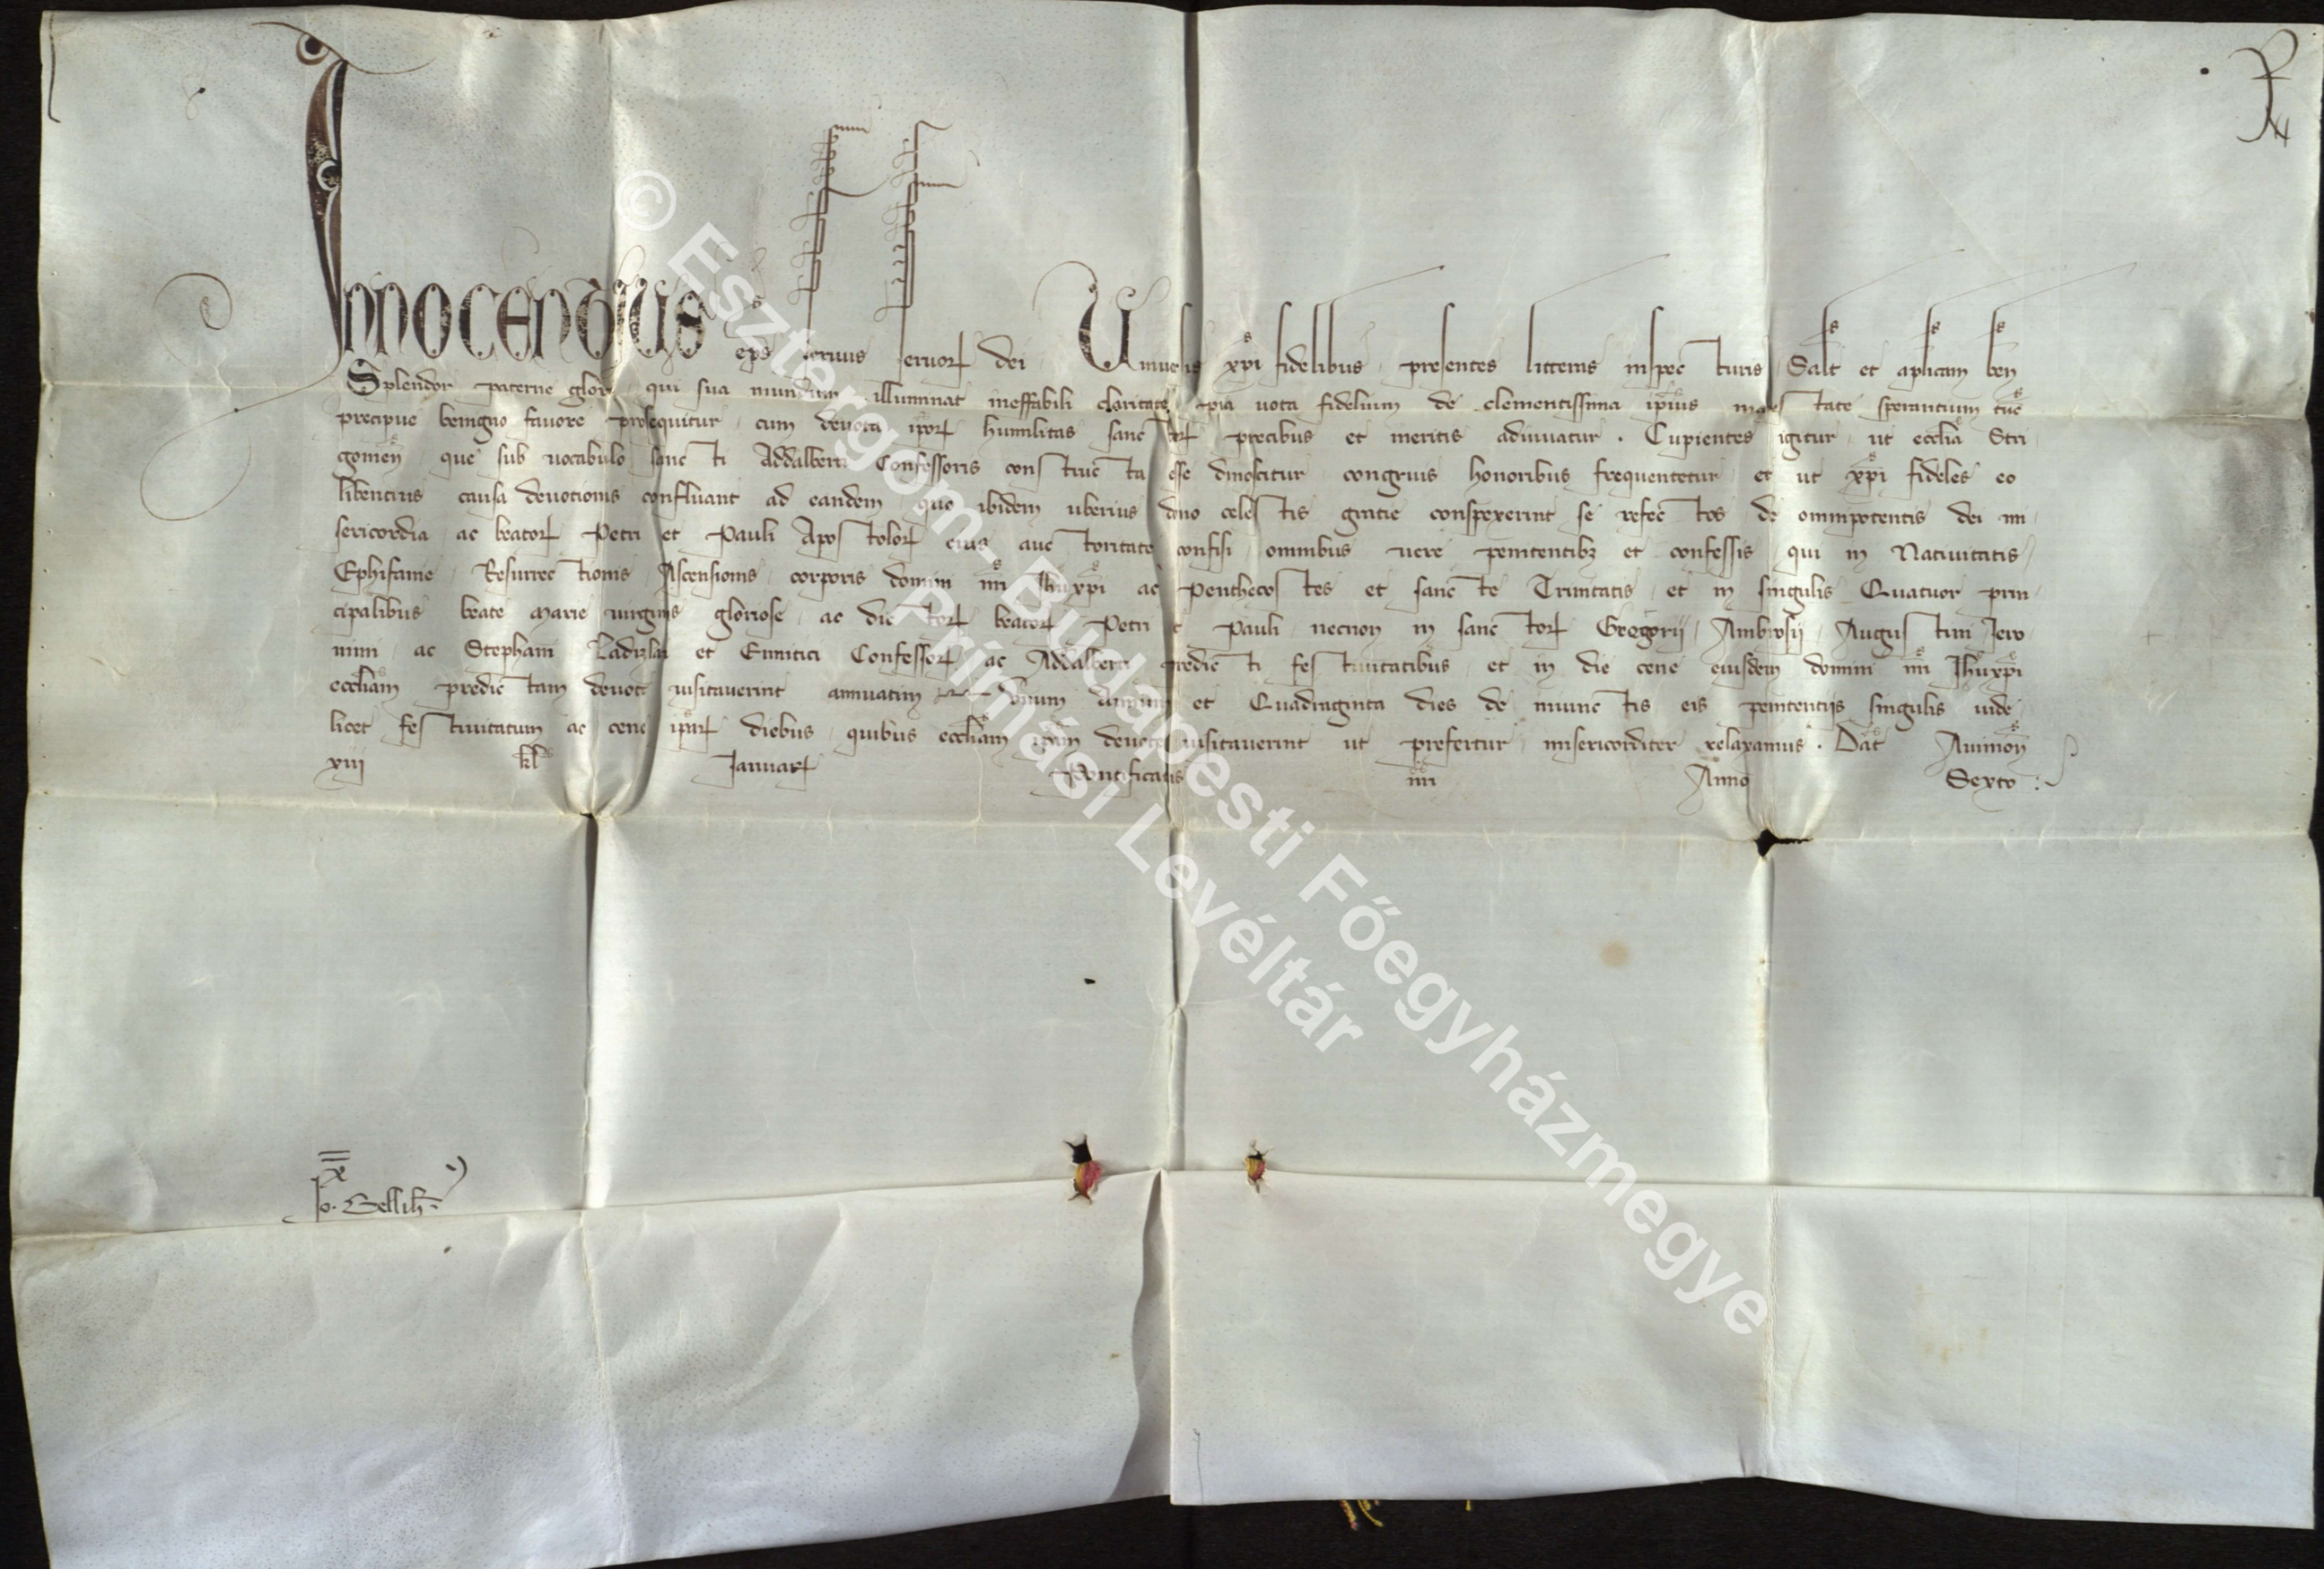 R
Innocentius eps servus servorꝝ dei Universis xpi fidelibus presentes litteras inspecturis Salt et aplicam ben
Splendor paterne glorie qui sua mundum illuminat ineffabili claritate pia vota fidelium de clementissima ipius maiestate sperantium tuc
precipue benigno favore prosequitur cum devota ipoꝝ humilitas sanctoꝝ precibus et meritis adiuvatur. Cupientes igitur ut ecclia Stri
gomen que sub vocabulo sancti Addalberti Confessoris constructa esse dinoscitur congruis honoribus frequentetur et ut xpi fideles eo
libentius causa devotionis confluant ad eandem quo ibidem uberius dono celestis gratie conspexerint se refectos de omnipotentis dei mi
sericordia ac beatoꝝ Petri et Pauli Apostoloꝝ eius auctoritate confisi omnibus vere penitentibꝫ et confessis qui in Nativitatis
Ephifanie Resurrectionis Ascensionis corporis domini nri Jhu xpi ac Penthecostes et sancte Trinitatis et in singulis Quatuor prin
cipalibus beate Marie virginis gloriose ac dictoꝝ beatoꝝ Petri et Pauli necnon in sanctoꝝ Gregorii Ambrosii Augustini Jero
nimi ac Stephani Ladizlai et Emirici Confessoꝝ ac Addalberti predicti festivitatibus et in die cene eiusdem domini nri Jhu xpi
eccliam predictam devote visitaverint annuatim Unum Annum et Quadraginta dies de iniunctis eis penitentiis singulis vide
licet festivitatum ac cene ipaꝝ diebus quibus eccliam ipam devote visitaverint ut prefertur misericorditer relaxamus. Dat Avinon
xiii kl Januaꝝ Pontificatus nri Anno Sexto
x
Jo.
© Esztergom-Budapesti Főegyházmegye
Prímási Levéltár